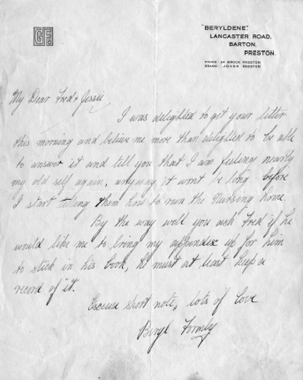 GF
"BERYLDENE",
LANCASTER ROAD,
BARTON,
PRESTON.
My Dear Fred & Jessie
I was delighted to get your letter
this morning and believe me more than delighted to be able
to answer it and tell you that I am feeling nearly
my old self again, anyway it wont be long before
I start ting them how to run the Nursing home.
By the way will you ask Fred if he
would like me to bring my appendix up for him
to stick in his book, he must at least keep a
record of it.
Excuse short note, lots of love
Beryl Formby